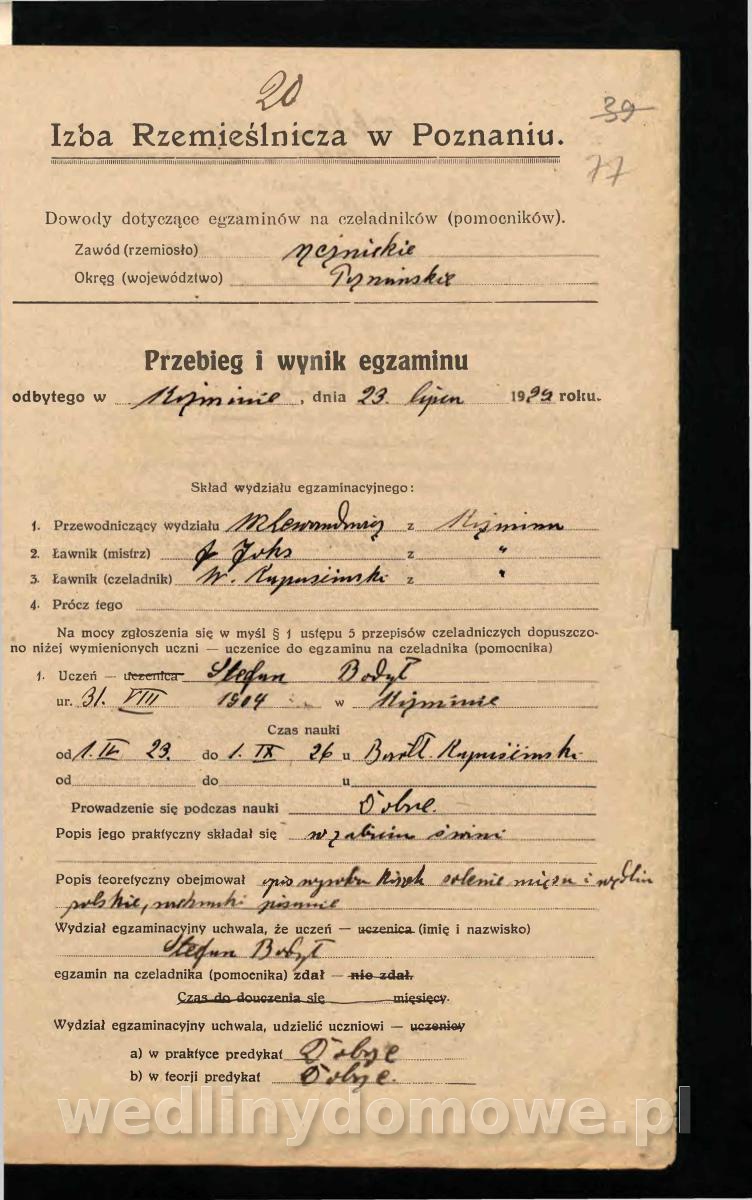 20
39
77
Izba Rzemieślnicza w Poznaniu.
Dowody dotyczące egzaminów na czeladników (pomocników).
Zawód (rzemiosło) rzeźnickie
Okręg (województwo) Poznańskie
Przebieg i wynik egzaminu
odbytego w Koźminie, dnia 23. lipca 19 roku.
Skład wydziału egzaminacyjnego:
1. Przewodniczący wydziału Lewandowicz z Koźmina
2. Ławnik (mistrz) z "
3. Ławnik (czeladnik) W. Kapuściński z "
4. Prócz tego
Na mocy zgłoszenia się w myśl § 1 ustępu 5 przepisów czeladniczych dopuszczo-
no niżej wymienionych uczni — uczenice do egzaminu na czeladnika (pomocnika)
1. Uczeń — uczenica Stefan Bodył
ur. 31. VIII 1904 w Koźminie
Czas nauki
od 1. IV 23. do 1. IX 26 u Kapuściński
od do u
Prowadzenie się podczas nauki Dobre.
Popis jego praktyczny składał się w zabiciu świni
Popis teoretyczny obejmował opis wyrobu kiszek solenie mięsa i wędlin
polskie, rachunki pisanie
Wydział egzaminacyjny uchwala, że uczeń — uczenica (imię i nazwisko)
Stefan Bodył
egzamin na czeladnika (pomocnika) zdał — nie zdał.
Czas do douczenia się miesięcy.
Wydział egzaminacyjny uchwala, udzielić uczniowi — uczenicy
a) w praktyce predykat Dobrze
b) w teorji predykat Dobrze.
wedlinydomowe.pl